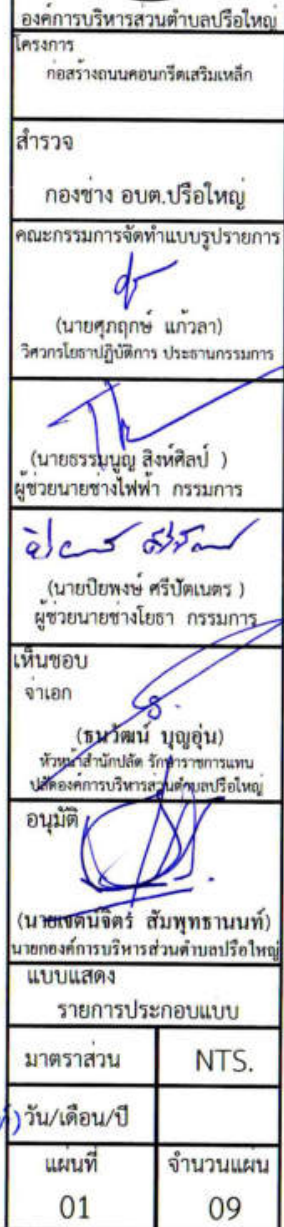 องค์การบริหารส่วนตำบลปรือใหญ่
โครงการ
ก่อสร้างถนนคอนกรีตเสริมเหล็ก
สำรวจ
กองช่าง อบต.ปรือใหญ่
คณะกรรมการจัดทำแบบรูปรายการ
(นายศุภฤกษ์ แก้วลา)
วิศวกรโยธาปฏิบัติการ ประธานกรรมการ
(นายธรรมนูญ สิงห์ศิลป์ )
ผู้ช่วยนายช่างไฟฟ้า กรรมการ
(นายปิยพงษ์ ศรีปัตเนตร )
ผู้ช่วยนายช่างโยธา กรรมการ
เห็นชอบ
จ่าเอก
(ธนวัฒน์ บุญอุ่น)
หัวหน้าสำนักปลัด รักษาราชการแทน
ปลัดองค์การบริหารส่วนตำบลปรือใหญ่
อนุมัติ
(นายเจตน์จิตร์ สัมพุทธานนท์)
นายกองค์การบริหารส่วนตำบลปรือใหญ่
แบบแสดง
รายการประกอบแบบ
มาตราส่วน NTS.
วัน/เดือน/ปี
แผ่นที่ จำนวนแผ่น
01 09